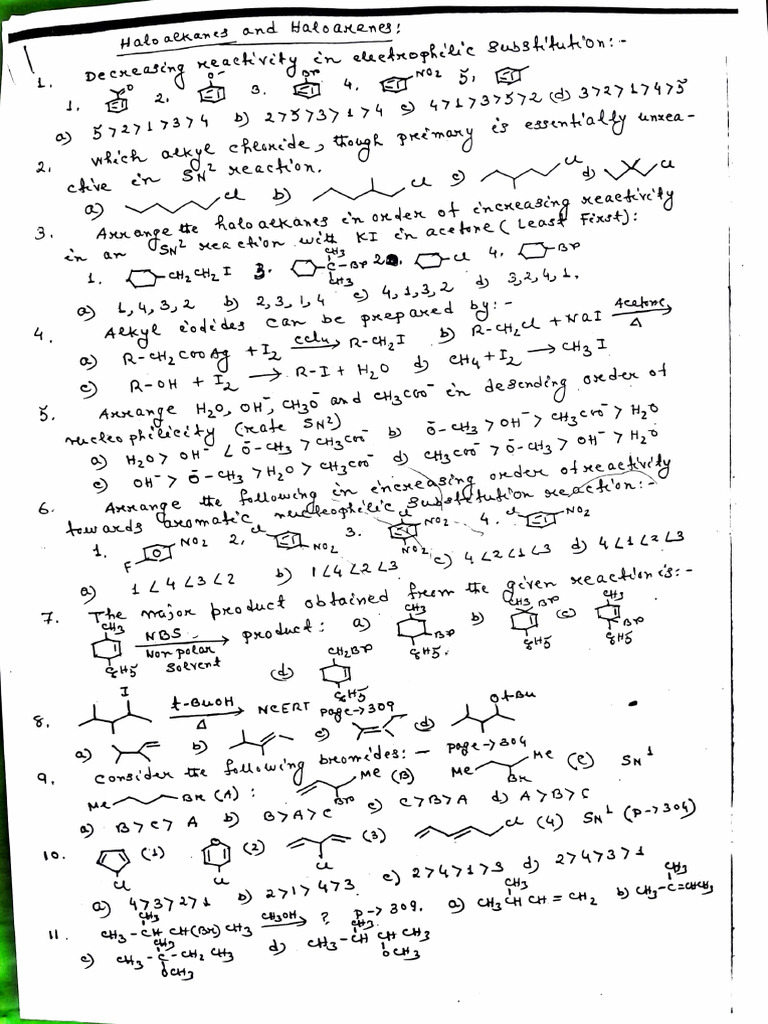 Haloalkanes and Haloarenes:
1. Decreasing reactivity in electrophilic substitution:-
1. 2. O⁻ 3. Br 4. NO2 5.
a) 5>2>1>3>4 b) 2>5>3>1>4 c) 4>1>3>5>2 (d) 3>2>1>4>5
2. Which alkyl chloride, though primary is essentially unrea-
ctive in SN2 reaction.
a) Cl b) Cl c) Cl d) Cl
3. Arrange the haloalkanes in order of increasing reactivity
in an SN2 reaction with KI in acetone (Least First):
1. CH2CH2I 3. CH3 C-Br CH3 2. Cl 4. Br
a) 1,4,3,2 b) 2,3,1,4 c) 4,1,3,2 d) 3,2,4,1,
4. Alkyl iodides can be prepared by:-
a) R-CH2COOAg + I2 CCl4→ R-CH2I b) R-CH2Cl + NaI Acetone→ Δ
c) R-OH + I2 → R-I + H2O d) CH4 + I2 → CH3I
5. Arrange H2O, OH⁻, CH3O⁻ and CH3COO⁻ in desending order of
nucleophilicity (rate SN2)
a) H2O > OH⁻ < O⁻-CH3 > CH3COO⁻ b) O⁻-CH3 > OH⁻ > CH3COO⁻ > H2O
c) OH⁻ > O⁻-CH3 > H2O > CH3COO⁻ d) CH3COO⁻ > O⁻-CH3 > OH⁻ > H2O
6. Arrange the following in increasing order of reactivity
towards aromatic nucleophilic substitution reaction:-
1. F NO2 2. Cl NO2 3. Cl NO2 NO2 4. Cl NO2
a) 1<4<3<2 b) 1<4<2<3 c) 4<2<1<3 d) 4<1<2<3
7. The major product obtained from the given reaction is:-
CH3 C6H5 NBS Non polar solvent → product: a) CH3 Br C6H5. b) CH3 Br C6H5 (c) CH3 Br C6H5
(d) CH2Br C6H5
8. I t-BuOH → Δ NCERT Page→309
a) b) c) (d) OtBu
9. Consider the following bromides:- page→304
Me Br (A): Me Br (B) Me Me Br (C) SN1
a) B>C>A b) B>A>C c) C>B>A d) A>B>C
10. Cl (1) Cl (2) Cl (3) Cl (4) SN1 (P→304)
a) 4>3>2>1 b) 2>1>4>3 c) 2>4>1>3 d) 2>4>3>1
11. CH3-CH CH(Br)CH3 CH3 CH3OH→ ? P→309. a) CH3CH CH=CH2 CH3 b) CH3-C=CHCH3 CH3
c) CH3-C-CH2CH3 CH3 OCH3 d) CH3-CH CH CH3 CH3 OCH3